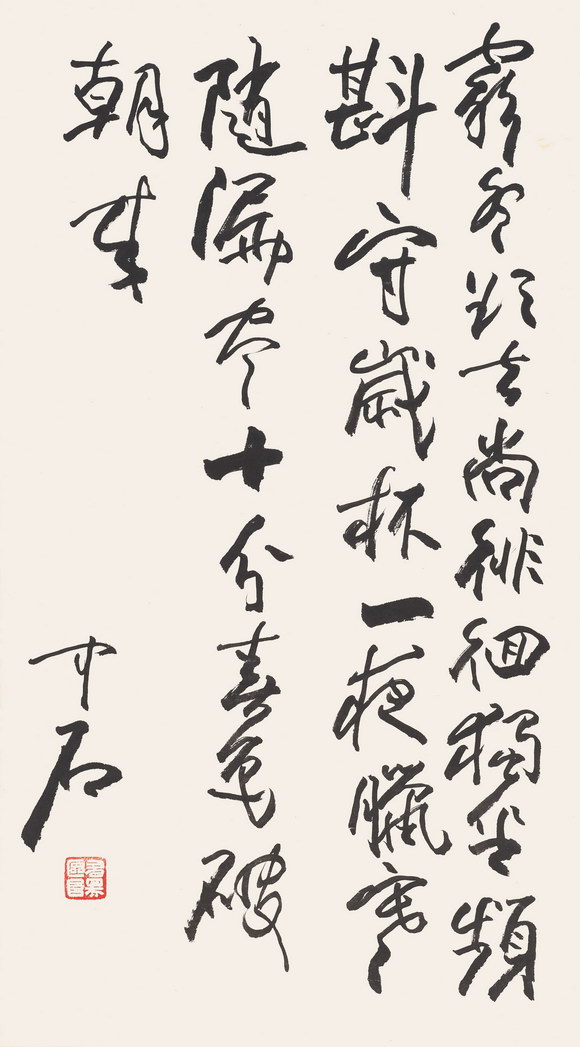 窮冬欲去尚徘徊獨坐頻
斟守歲杯一夜臘寒
隨漏盡十分春色破
朝來
中石